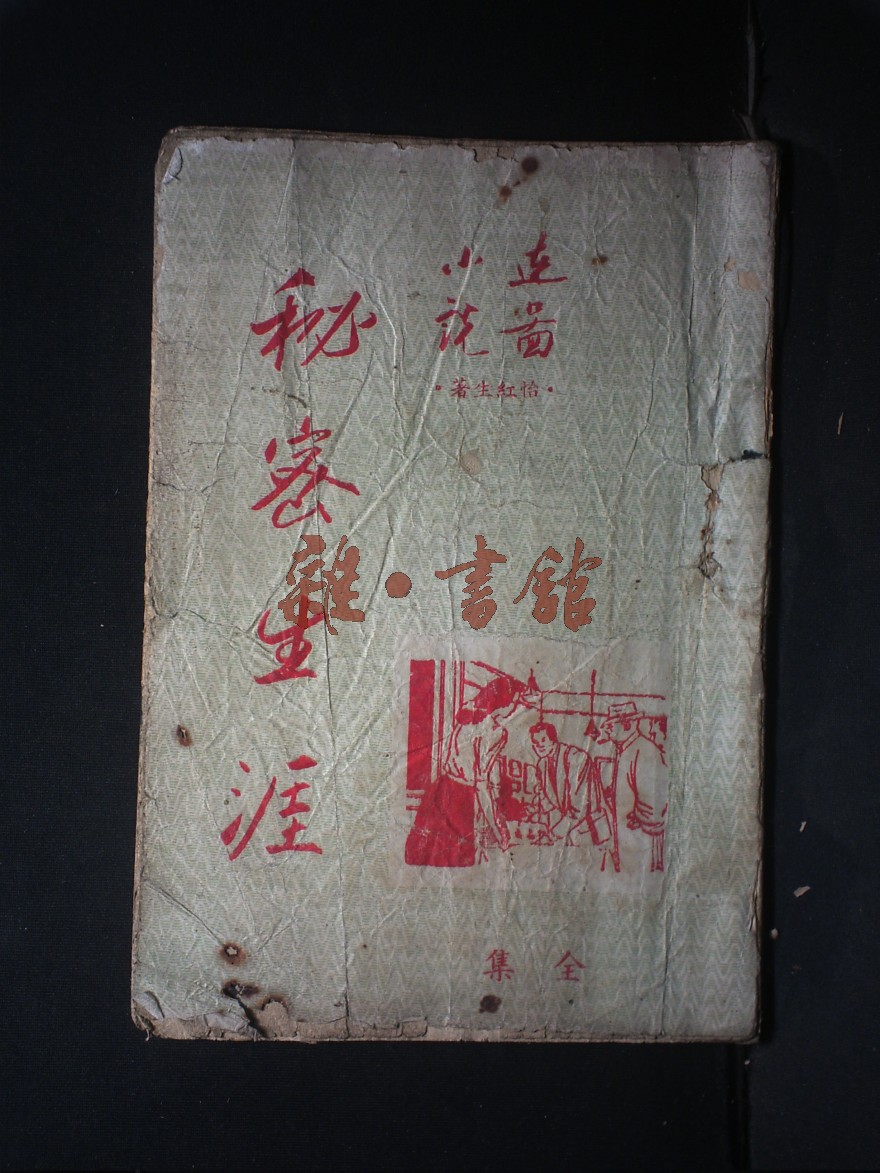 連圖
小說
•怡紅生著•
秘密生涯
全集
雜•書館